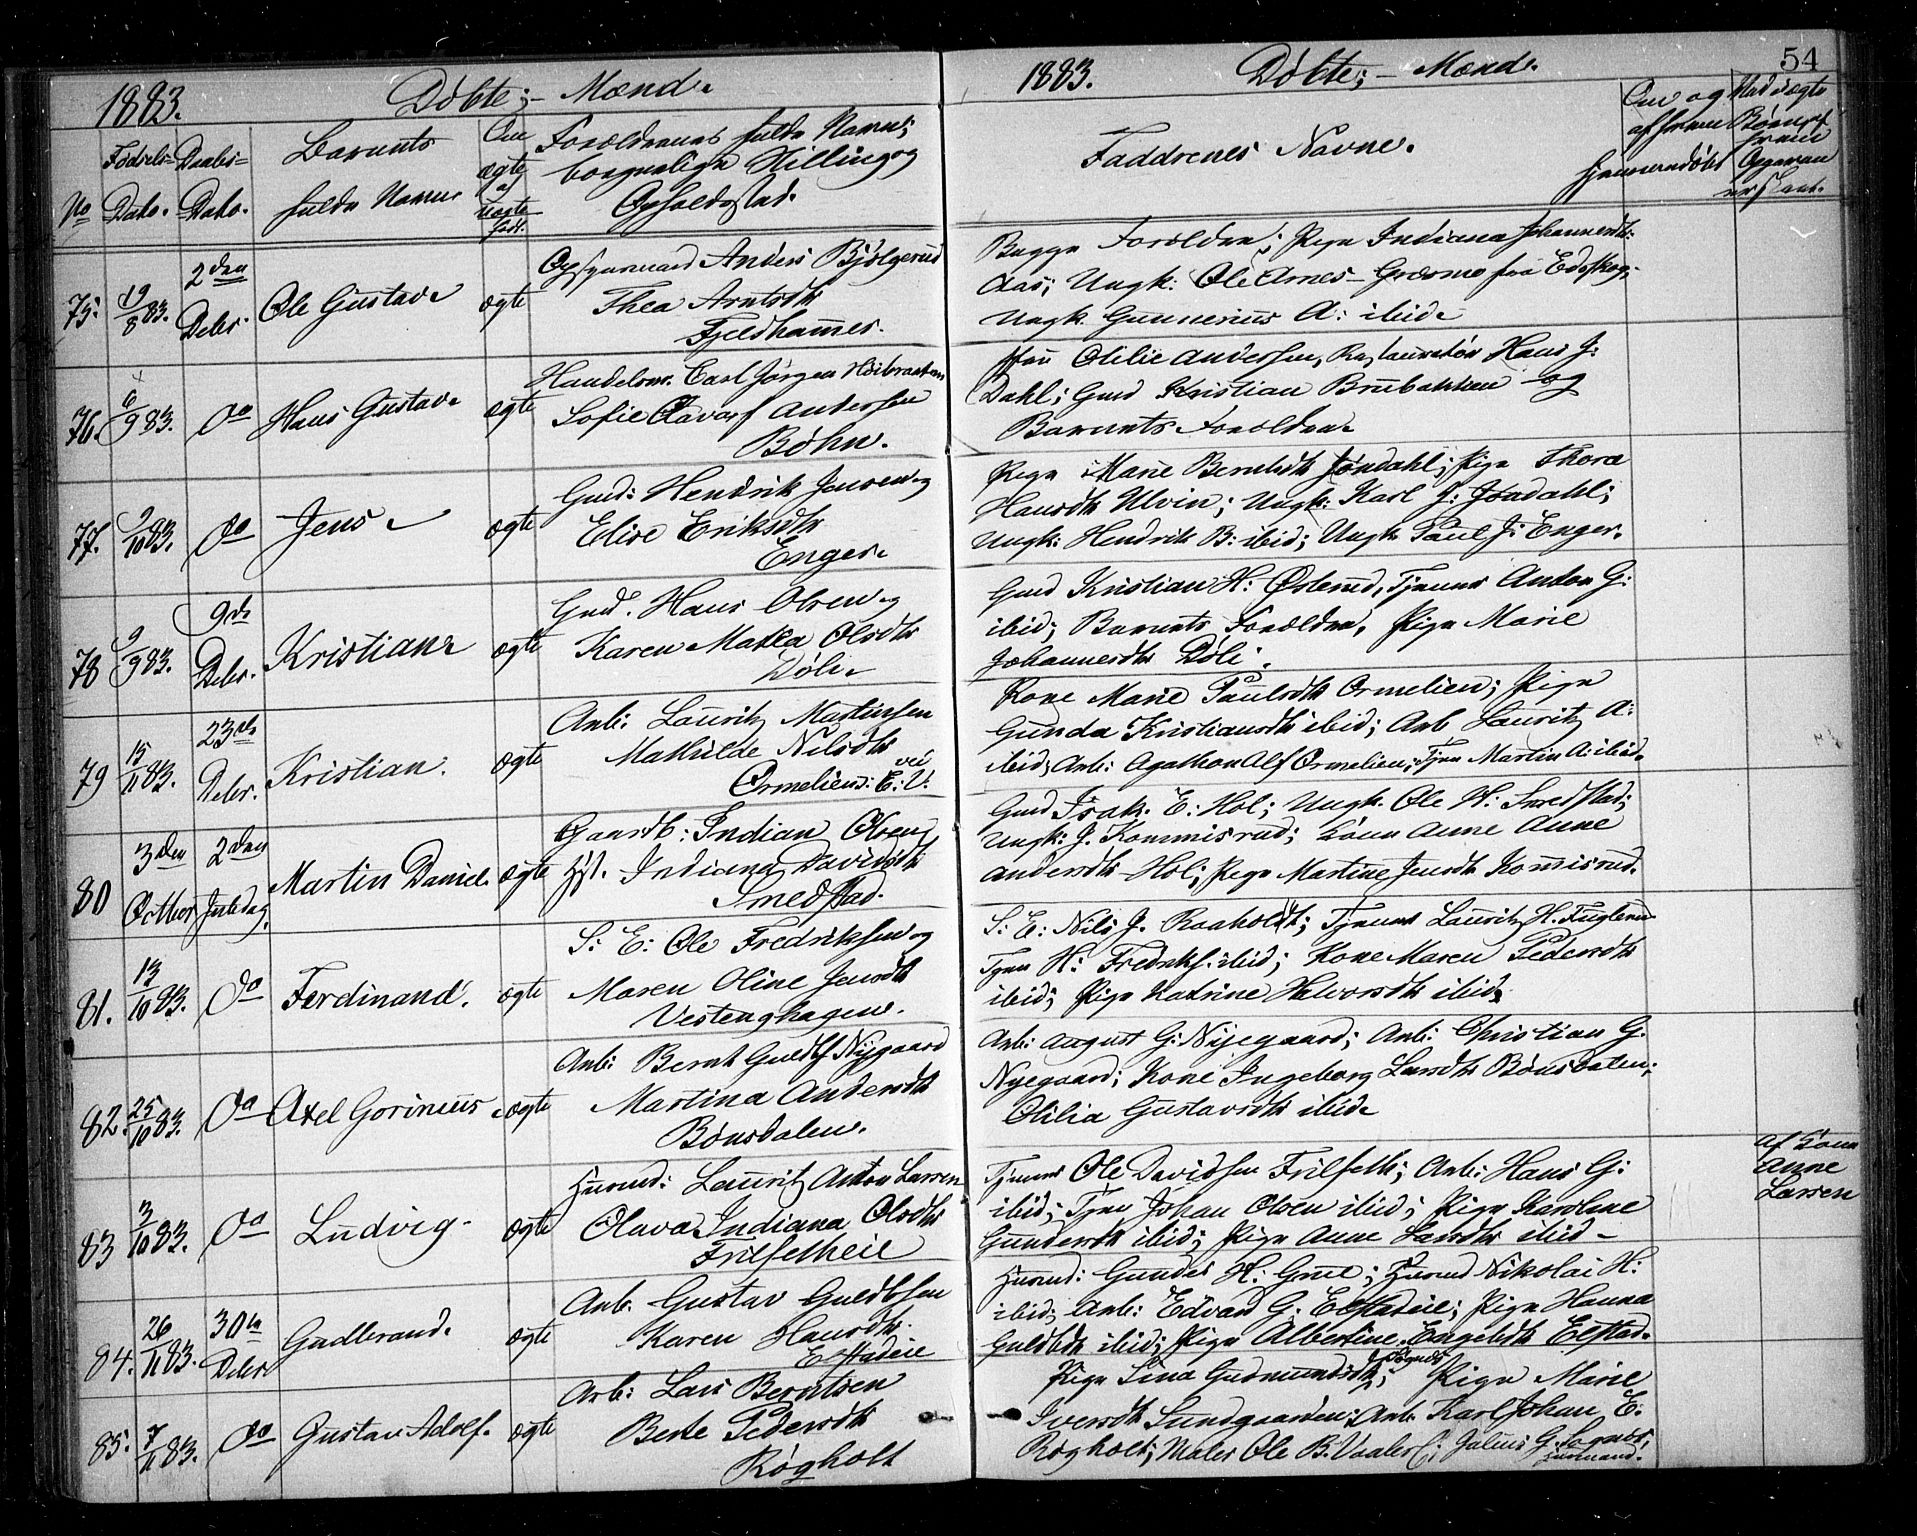 54
1883. Döbte;- Mænd.
No
Fødsels-
Dato.
Daabs-
Dato.
Barnets
fulde Navn
Om
ægte
el
uægte
født.
Forældrenes fulde Navne;
borgerlige Stilling og
Opholdsted.
75. 19/8 83. 2den Debr. Ole Gustav. ægte
Opsynsmand Anders Bjölgerud
Thea Arntsdtr
Fjeldhammer.
76. 6/9 83. Do Hans Gustav. ægte
Handelsm. Carl Jörgen Höibraaten
Sofie Olava f Andersen
Bøhn.
77. 9/10 83. Do Jens. ægte
Gmd: Hendrik Jensen og
Elise Eriksdtr
Enger.
78 9/9 83. 9de Debr. Kristian. ægte
Gmd. Hans Olsen og
Karen Mathea Olsdtr
Döli.
79 15/11 83. 23de Debr. Kristian. ægte
Arb: Lauritz Martinsen
Mathilde Nilsdtr
Ormelien: E: V: vei
80 3den Octbor 2den Juledag. Martin Daniel. ægte
Gaardb: Indian Olsen,
Hst. Indiana Davidsdtr
Smedstad.
81. 13/10 83. Do Ferdinand. ægte
S: E: Ole Fredriksen og
Maren Oline Jensdtr
Vestenghagen.
82. 25/10 83. Do Axel Gorinius. ægte
Arb: Bernt Guldbf Nygaard
Martina Andersdtr
Bönsdalen.
83 3/10 83. Do Ludvig. ægte
Husmd: Lauritz Anton Larsen
Olava Indiana Olsdtr
Frilsetheie
84. 26/11 83. 30te Debr Gudbrand. ægte
Arb. Gustav Guldbsen
Karen Hansdtr.
Elstadeie
85. 7/11 83. Do Gustav Adolf. ægte
Arb: Lars Berntsen
Berte Pedersdtr
Rögholt
1883. Döbte;- Mænd.
Faddrenes Navne.
Om og
af hvem
hjemmedøbt
Ved uægte
Børn
Opgaven
Begge Forældre; Pige Indiana Johannesdtr:
Aas; Ungk: Ole Arnes- Græsmo fra Edskog;
Ungk. Gunnerius A: ibid.
Fru Otilie Andersen, Restauratör Hans J:
Dahl; Gmd Kristian Brubakken og
Barnets Forældre.
Pige Marie Berntsdtr Jöndahl; Pige Thora
Hansdtr Ulvin; Ungk: Karl J: Jöndahl;
Ungk: Hendrik B: ibid; Ungk Paul J: Enger.
Gmd Kristian H: Østerud, Tjener Anton G:
ibid; Barnets Forældre, Pige Marie
Johannesdtr Döli.
Kone Marie Paulsdtr Ormelien; Pige
Gunda Kristiansdtr ibid; Arb Lauritz A:
ibid; Arb: Agathon Alf Ormelien; Tjen Martin A: ibid.
Gmd Isak: E: Hol; Ungk. Ole H: Smedstad;
Ungk: J. Kommisrud; Kone Anne Anne
Andersdtr Hol; Pige Martine Jensdtr Komisrud.
S: E: Nils J. Raaholdt; Tjener Lauritz H. Fuglerud
Tjen H: Fredriks. ibid; Kone Maren Pedersdtr
ibid; Pige Katrine Halvorsdtr ibid.
Arb: August G: Nyegaard; Arb: Christian G.
Nyegaard; Kone Ingeborg Larsdtr Bönsdalen;
Otilia Gustavsdtr ibid.
Tjener Ole Davidsen Frilseth; Arb: Hans G:
ibid; Tjen Johan Olsen ibid; Pige Karoline
Gundersdtr ibid; Pige Anne Larsdtr ibid-
af Kone
Anne
Larsen
Husmd: Gunder H: Grue; Husmd Nikolai H:
ibid; Arb: Edvard G: Elstadeie; Pige Hanna
Guldbdtr ibid; Pige Albertine Engebdtr Elstad.
Pige Sina Gudmundsdtr; Pige Marie
Iversdtr Sundgaarden; Arb. Karl Johan E:
Rögholt; Maler Ole B: Vaaler; Julius G. Sogner,
Husmand.